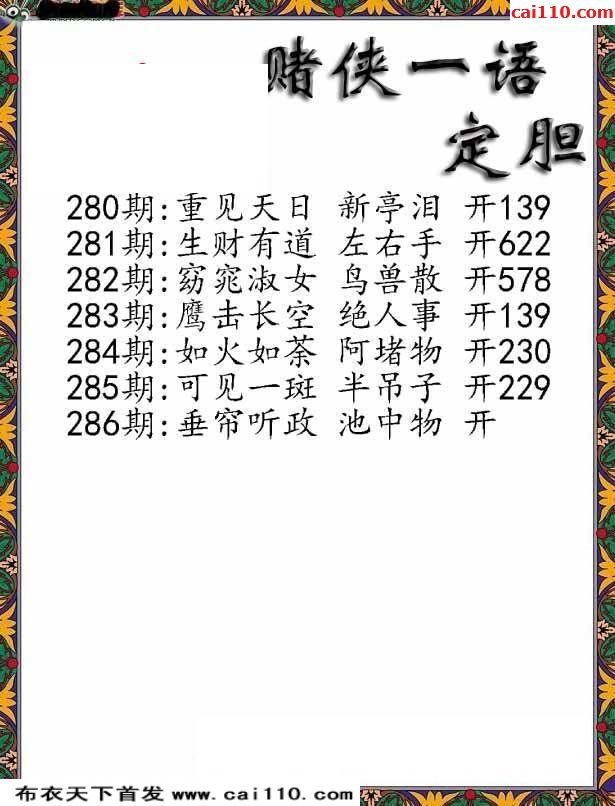 cai110.com
赌侠一语
定胆
280期:重见天日 新亭泪 开139
281期:生财有道 左右手 开622
282期:窈窕淑女 鸟兽散 开578
283期:鹰击长空 绝人事 开139
284期:如火如荼 阿堵物 开230
285期:可见一斑 半吊子 开229
286期:垂帘听政 池中物 开
布衣天下首发 www.cai110.com